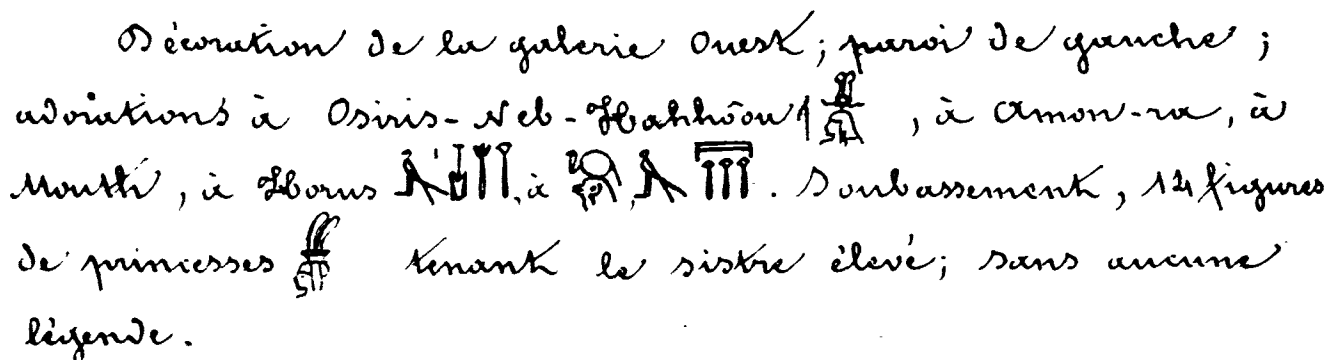 Décoration de la galerie Ouest; paroi de gauche;
adorations à Osiris-Neb-Hahhôou, à Amon-ra, à
Mouth, à Horus, à . Soubassement, 14 figures
de princesses tenant le sistre élevé; sans aucune
légende.